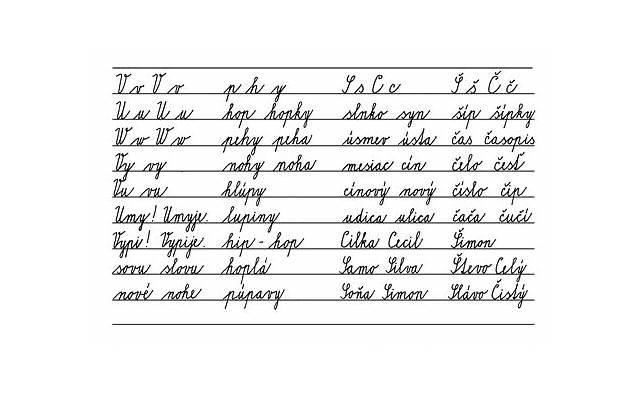 V v V v p h y S s C c Š š Č č
U u U u hop hopky slnko syn šíp šípky
W w W w pehy peha úsmev ústa čas časopis
Vy vy nohy noha mesiac cín čelo česť
Vu vu hlúpy cínový nový číslo čip
Umy! Umyje. lupiny udica ulica čača čučí
Vypi! Vypije. hip - hop Cilka Cecil Šimon
sovu slovu hoplá Samo Silva Števo Celý
nové nohe púpavy Soňa Simon Slávo Čistý